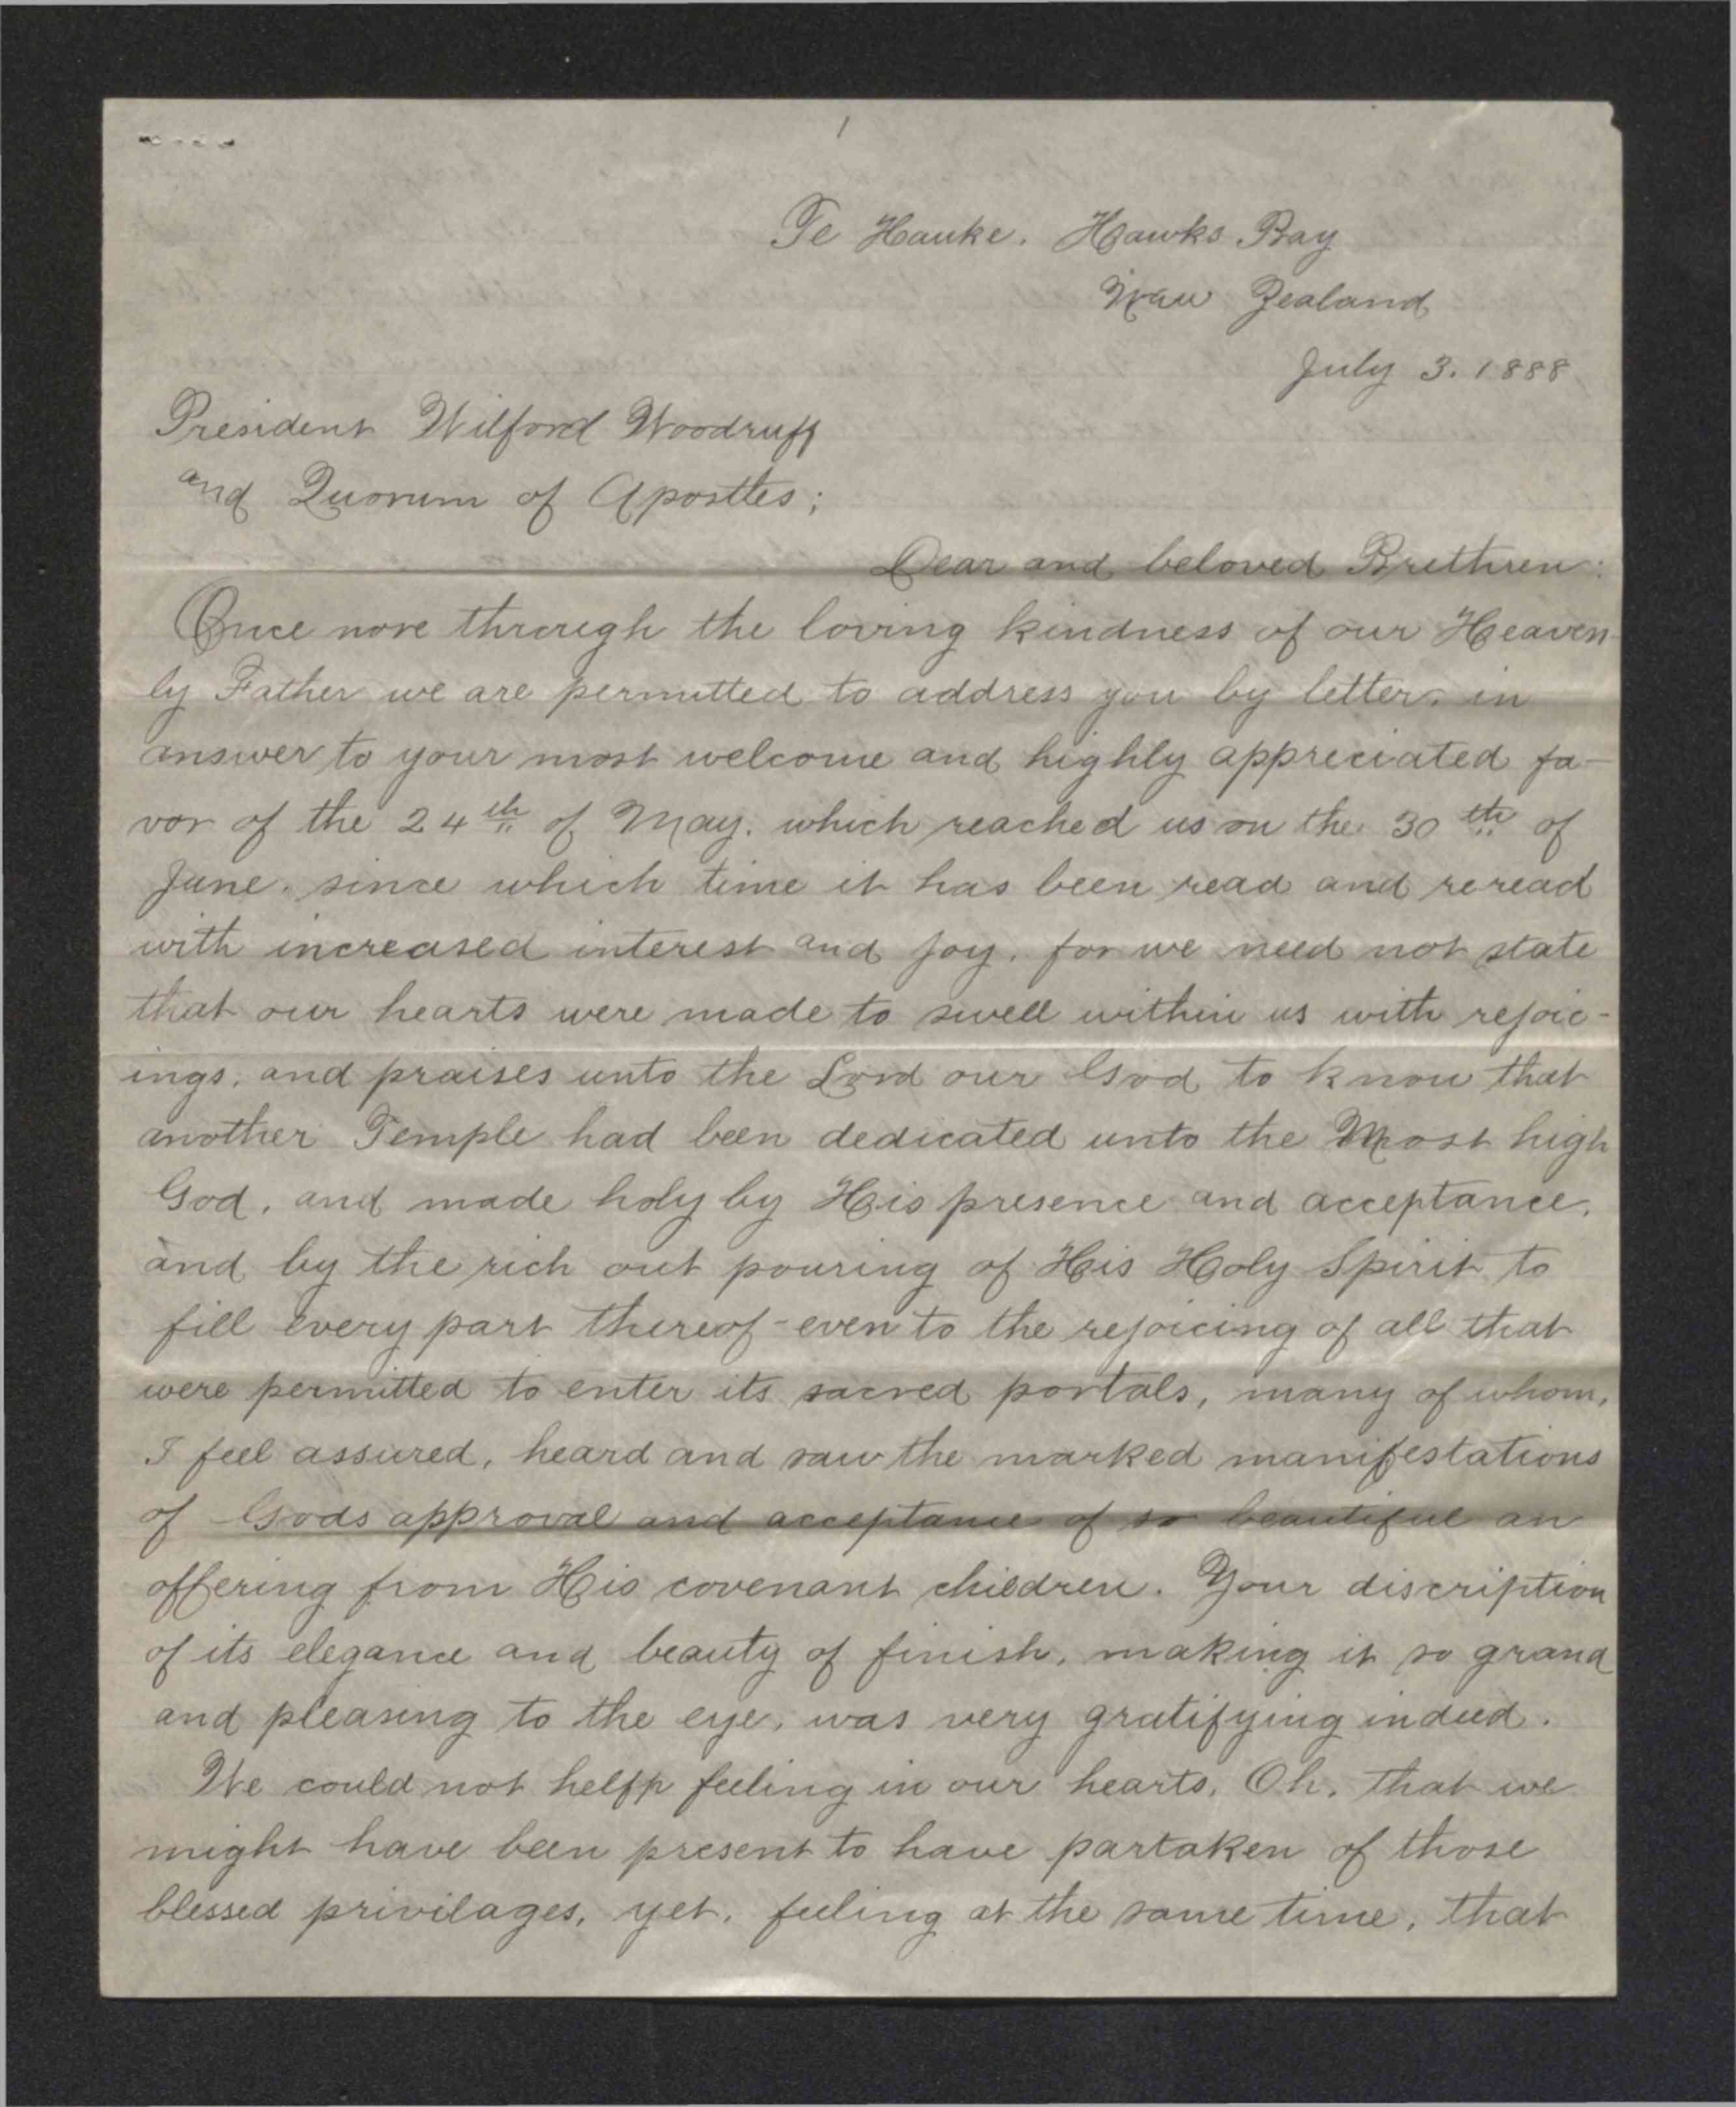 1
Te Hauke. Hawks Bay
New Zealand
July 3. 1888
President Wilford Woodruff
and Quorum of Apostles;
Dear and beloved Brethren:
Once more through the loving kindness of our Heaven-
ly Father we are permitted to address you by letter, in
answer to your most welcome and highly appreciated fa-
vor of the 24th of May. which reached us on the 30th of
June. since which time it has been read and reread
with increased interest and joy, for we need not state
that our hearts were made to swell within us with rejoic-
ings, and praises unto the Lord our God to know that
another Temple had been dedicated unto the Most high
God, and made holy by His presence and acceptance,
and by the rich out pouring of His Holy Spirit to
fill every part thereof - even to the rejoicing of all that
were permitted to enter its sacred portals, many of whom,
I feel assured, heard and saw the marked manifestations
of Gods approval and acceptance of so beautiful an
offering from His covenant children. Your discription
of its elegance and beauty of finish, making it so grand
and pleasing to the eye, was very gratifying indeed.
We could not helpp feeling in our hearts, Oh, that we
might have been present to have partaken of those
blessed privilages, yet, feeling at the same time, that